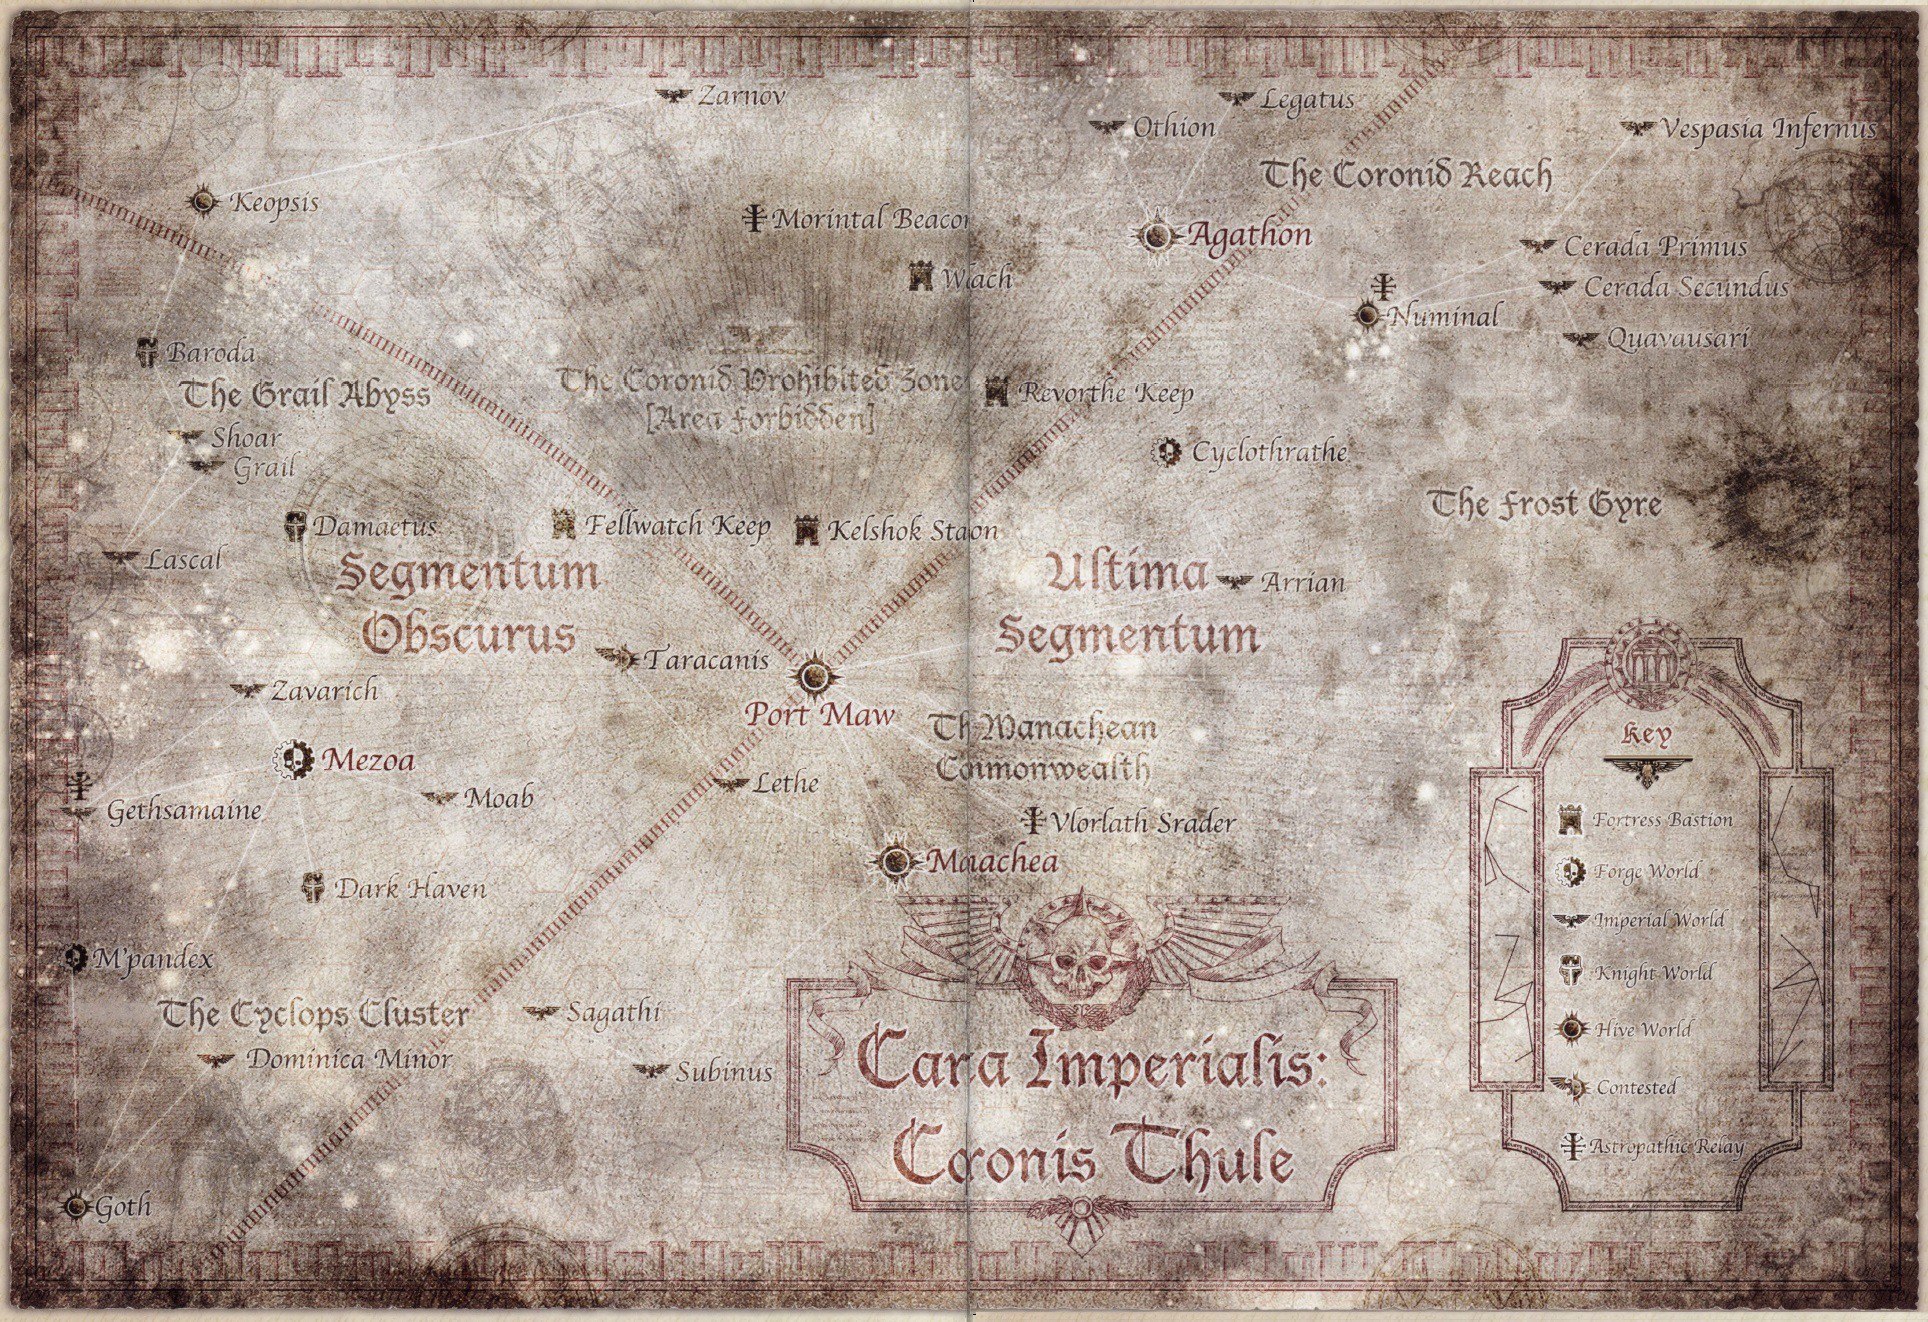 Zarnov
Legatus
Othion
Vespasia Infernus
The Coronid Reach
Keopsis
Morintal Beacon
Agathon
Cerada Primus
Wiach
Cerada Secundus
Numinal
Quavausari
Baroda
The Grail Abyss
The Coronid Prohibited Zone
[Area Forbidden]
Revorthe Keep
Shoar
Grail
Cyclothrathe
The Frost Gyre
Damaetus
Fellwatch Keep
Kelshok Staon
Lascal
Segmentum
Obscurus
Ultima
Segmentum
Arrian
Taracanis
Port Maw
Zavarich
Th Manachean
Commonwealth
Key
Mezoa
Lethe
Moab
Gethsamaine
Vlorlath Srader
Fortress Bastion
Maachea
Forge World
Dark Haven
Imperial World
M'pandex
Knight World
The Cyclops Cluster
Sagathi
Hive World
Dominica Minor
Subinus
Cara Imperialis:
Contested
Coronis Thule
Astropathic Relay
Goth